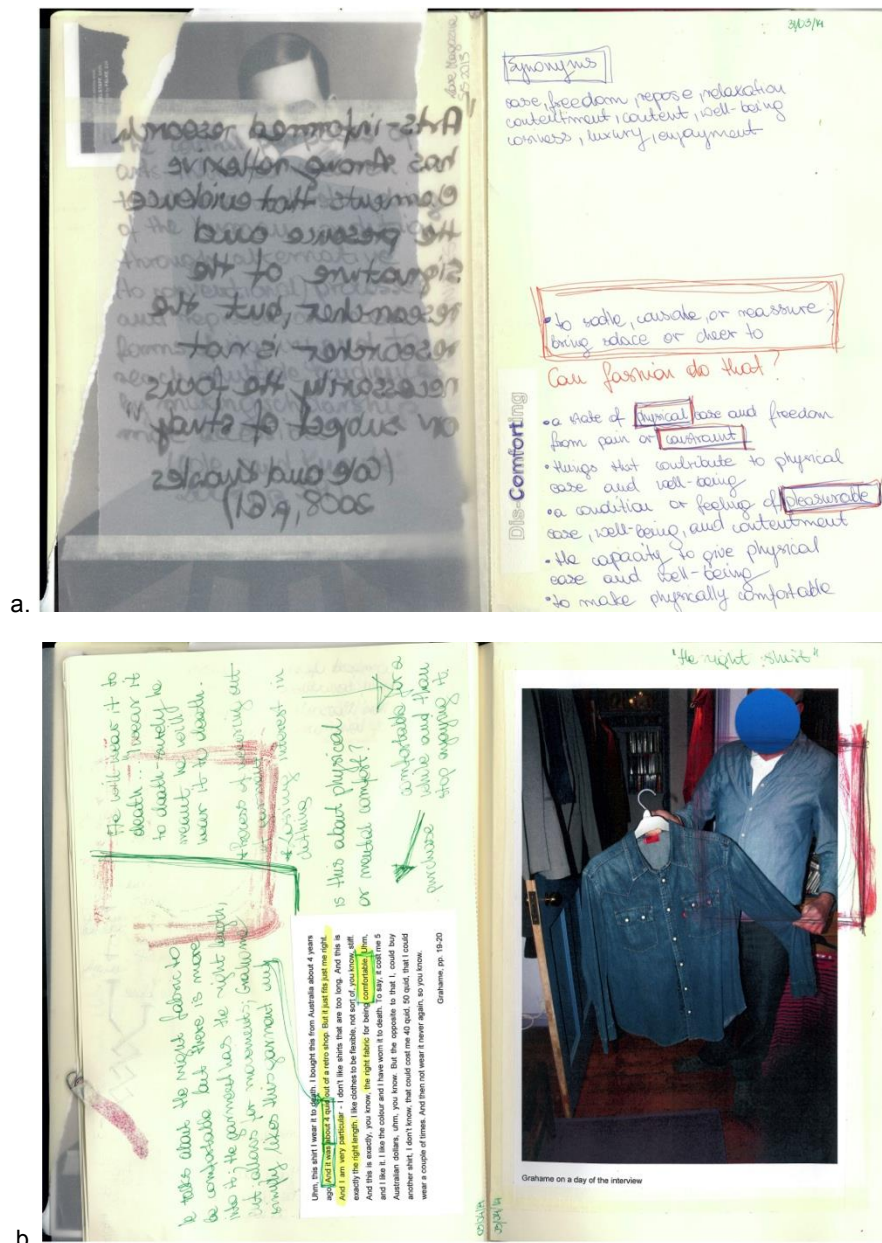 a.
Love Magazine
SS 2013
Arts-informed research
has strong reflexive
elements that evidence
the presence and
signature of the
researcher, but the
researcher is not
necessarily the focus
or subject of study
(Cole and Knowles
2008, p.61)
31/03/14
Synonyms
ease, freedom, repose, relaxation
contentment, content, well-being
cosiness, luxury, enjoyment
• to sooth, console, or reassure;
bring solace or cheer to
Can fashion do that?
Dis-Comforting
• a state of physical ease and freedom
from pain or constraint
• things that contribute to physical
ease and well-being
• a condition or feeling of pleasurable
ease, well-being, and contentment
• the capacity to give physical
ease and well-being
• to make physically comfortable
b.
He will wear it to
death... I wear it
to death - surely he
meant he really
wear it to death.
Process of wearing out
Losing interest in
clothing
is this about physical
or mental comfort?
purchase
comfortable for a
while and than
stop enjoying it.
he talks about the right fabric to
be comfortable but there is more
into it; the garment has the right length,
cut, allows for movements; Grahame
simply likes this garment
Uhm, this shirt I wear it to death. I bought this from Australia about 4 years
ago. And it was about 4 quid out of a retro shop. But it just fits just me right.
And I am very particular - I don't like shirts that are too long. And this is
exactly the right length. I like clothes to be flexible, not sort of, you know, stiff.
And this is exactly, you know, the right fabric for being comfortable. Uhm,
and I like it. I like the colour and I have worn it to death. To say, it cost me 5
Australian dollars, uhm, you know. But the opposite to that I, could buy
another shirt, I don't know, that could cost me 40 quid, 50 quid, that I could
wear a couple of times. And then not wear it never again, so you know.
Grahame, pp. 19-20
"the right shirt"
Grahame on a day of the interview